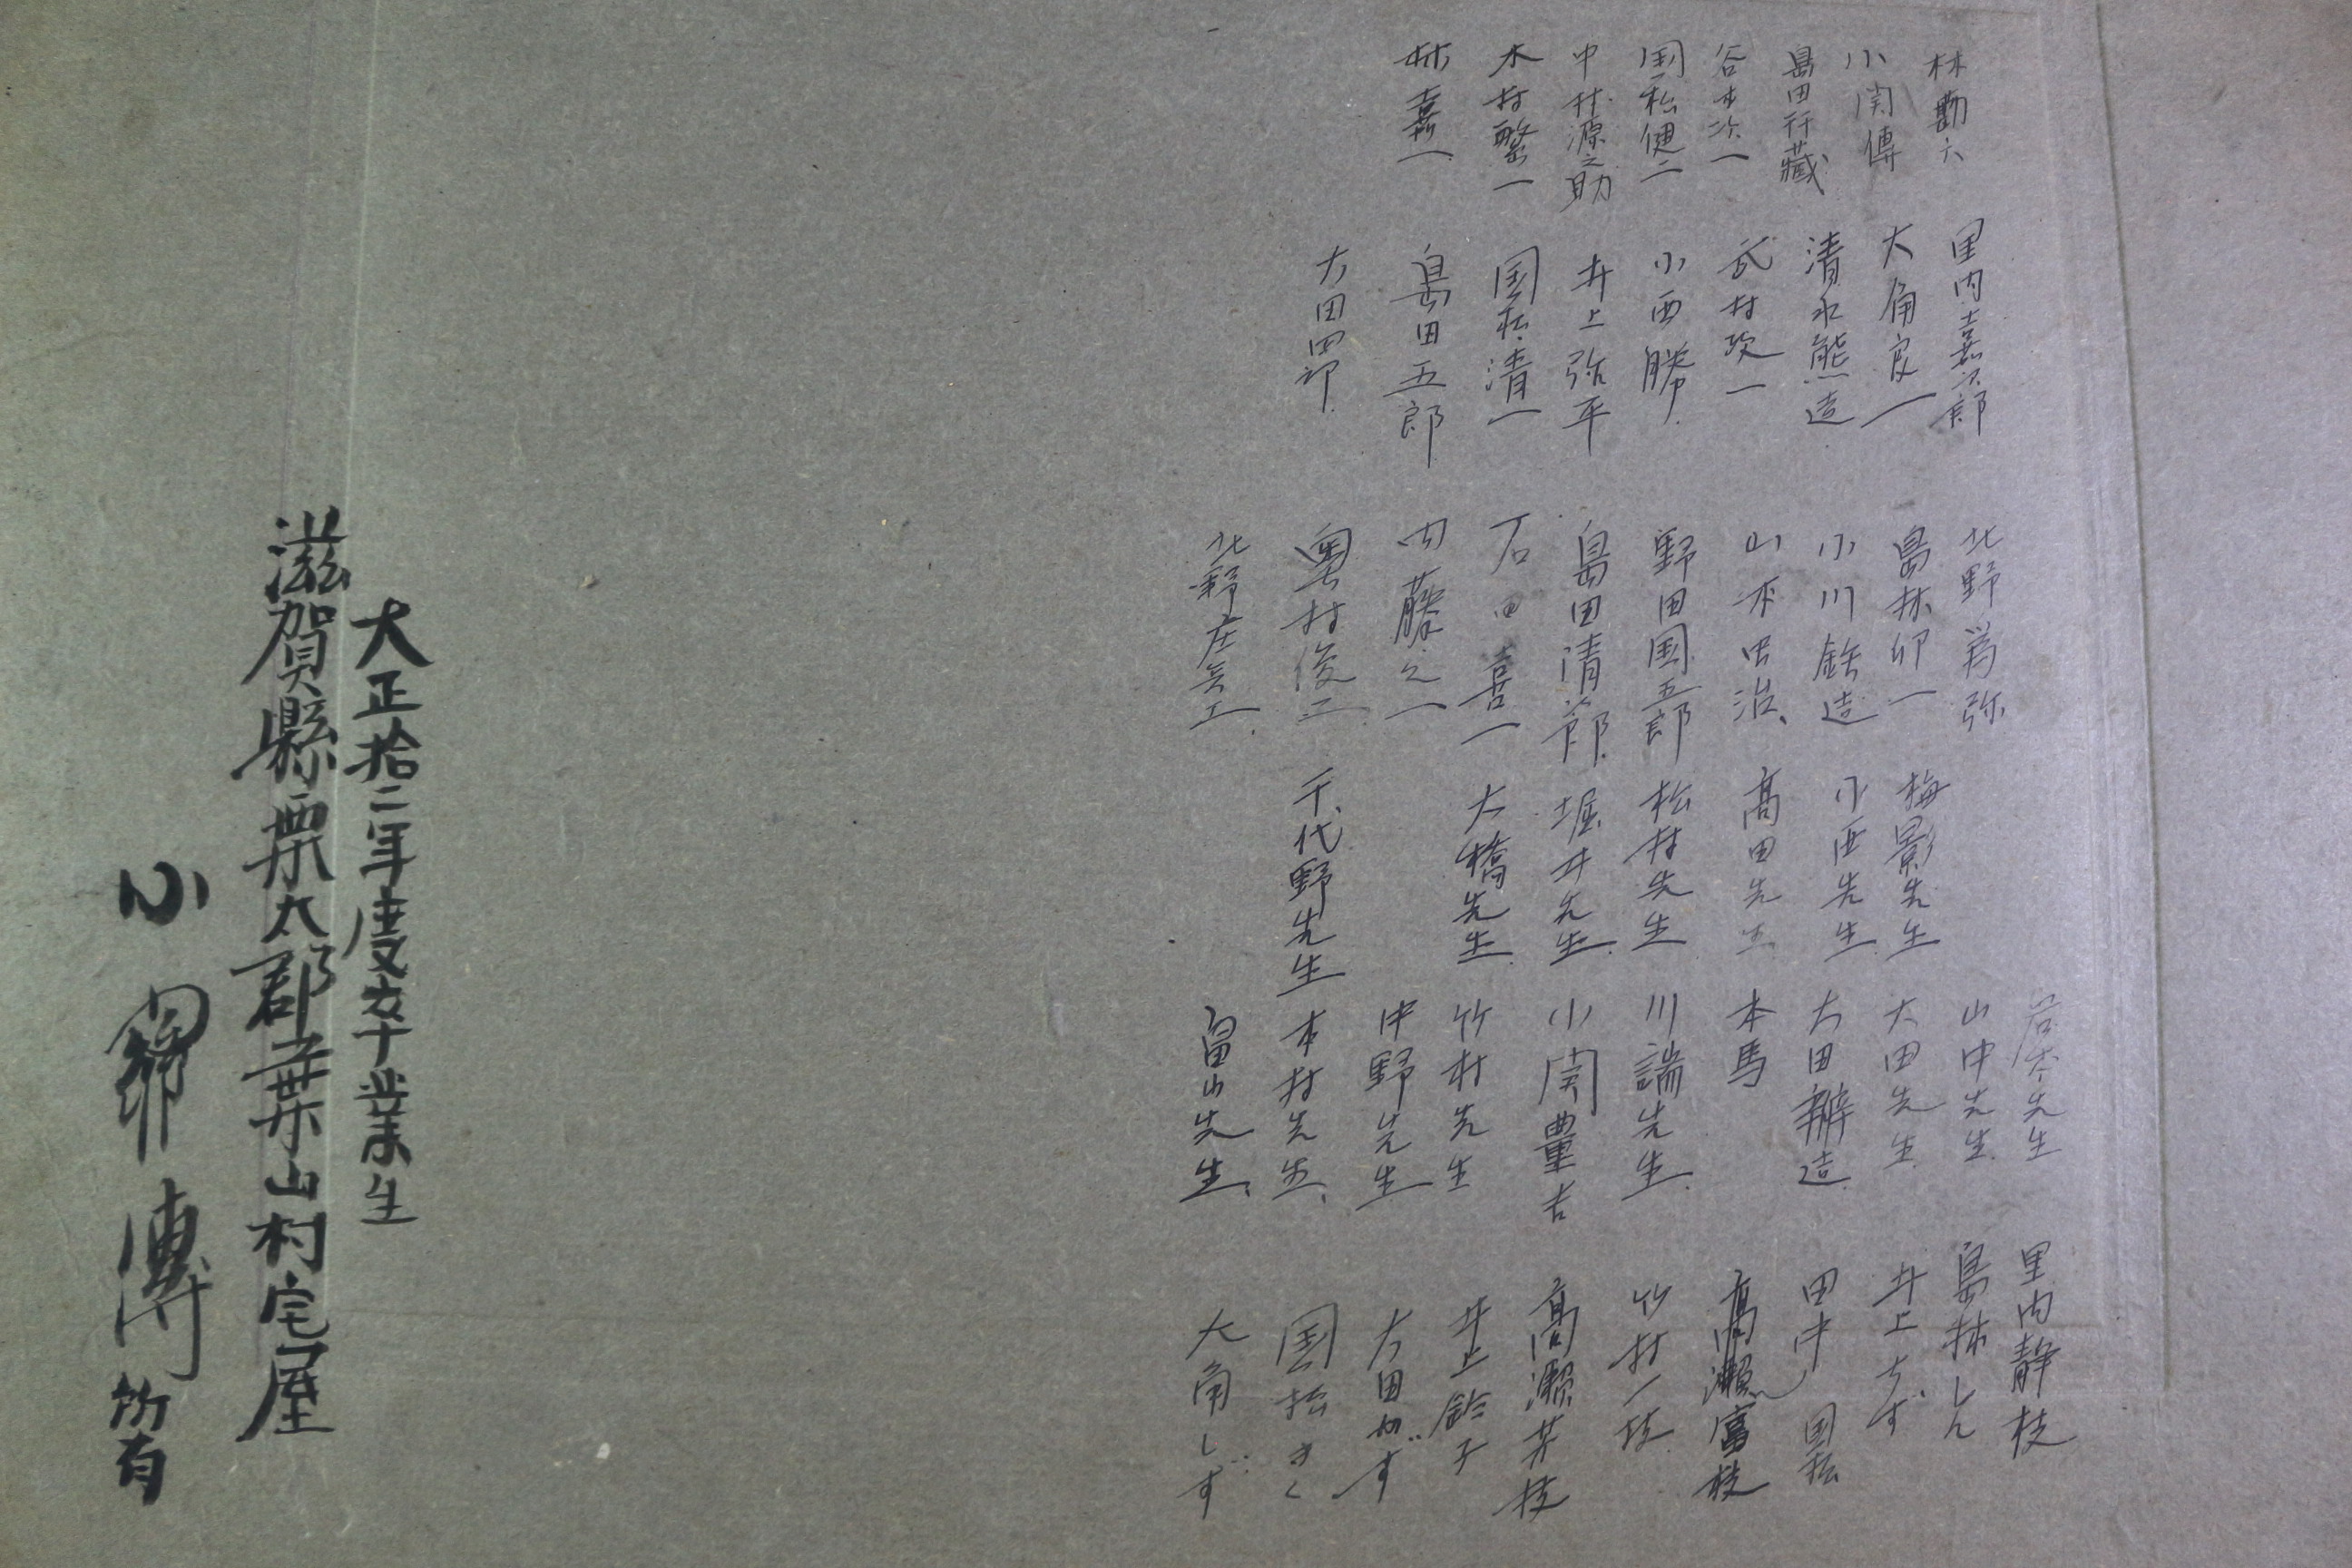 林勘六
小関傳
島田行藏
谷本次一
国松健二
中村源之助
木村繁一
林嘉一
里内嘉次郎
大角良一
清水熊造
武村政一
小西勝
井上弥平
国松清一
島田五郎
大田四郎
北野為弥
島林卯一
小川銈造
山本忠治
野田国五郎
島田清一郎
石田喜一
内藤之一
奥村俊三
北野庄兵工
梅影先生
小西先生
高田先生
松村先生
堀井先生
大橋先生
千代野先生
先生
山中先生
大田先生
大田辨造
本馬
川端先生
小関豊吉
竹村先生
中野先生
本村先生
畠山先生
里内静枝
島林しん
井上すず
田中 国松
高瀬富枝
竹村一枝
高瀬芳枝
井上鈴子
大田かずす
国松きく
大角しず
大正拾二年度卒業生
滋賀縣栗太郡葉山村宅屋
小関傳所有